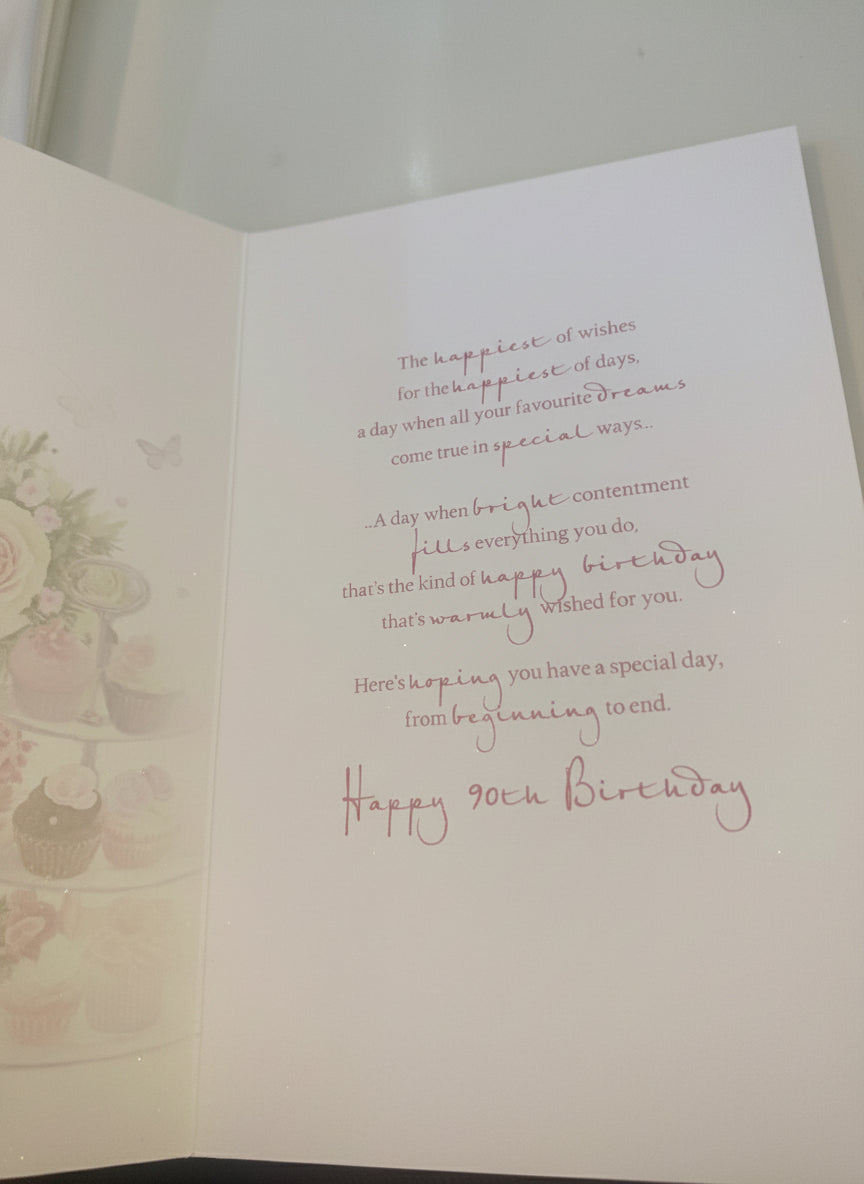 The happiest of wishes
for the happiest of days,
a day when all your favourite dreams
come true in special ways...
..A day when bright contentment
fills everything you do,
that's the kind of happy birthday
that's warmly wished for you.
Here's hoping you have a special day,
from beginning to end.
Happy 90th Birthday